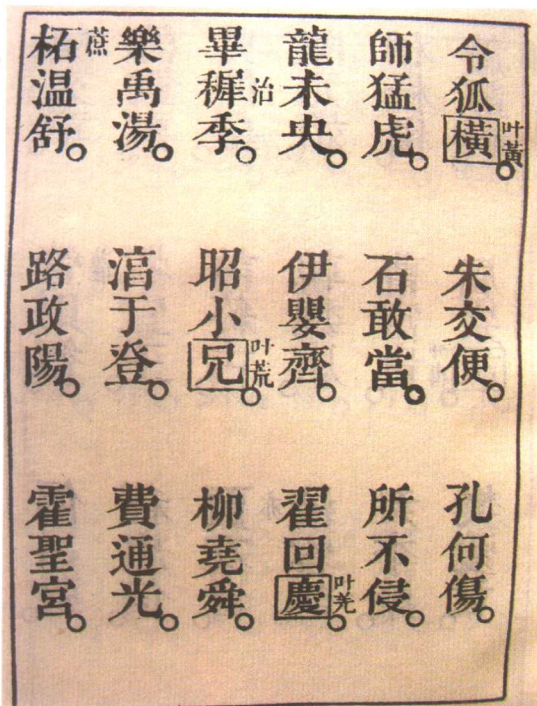 令狐橫叶黃。朱交便。孔何傷。
師猛虎。石敢當。所不侵。
龍未央。伊嬰齊。翟回慶叶羌。
畢稺治季。昭小兄叶荒。柳堯舜。
樂禹湯。湻于登。費通光。
柘蔗温舒。路政陽。霍聖宮。